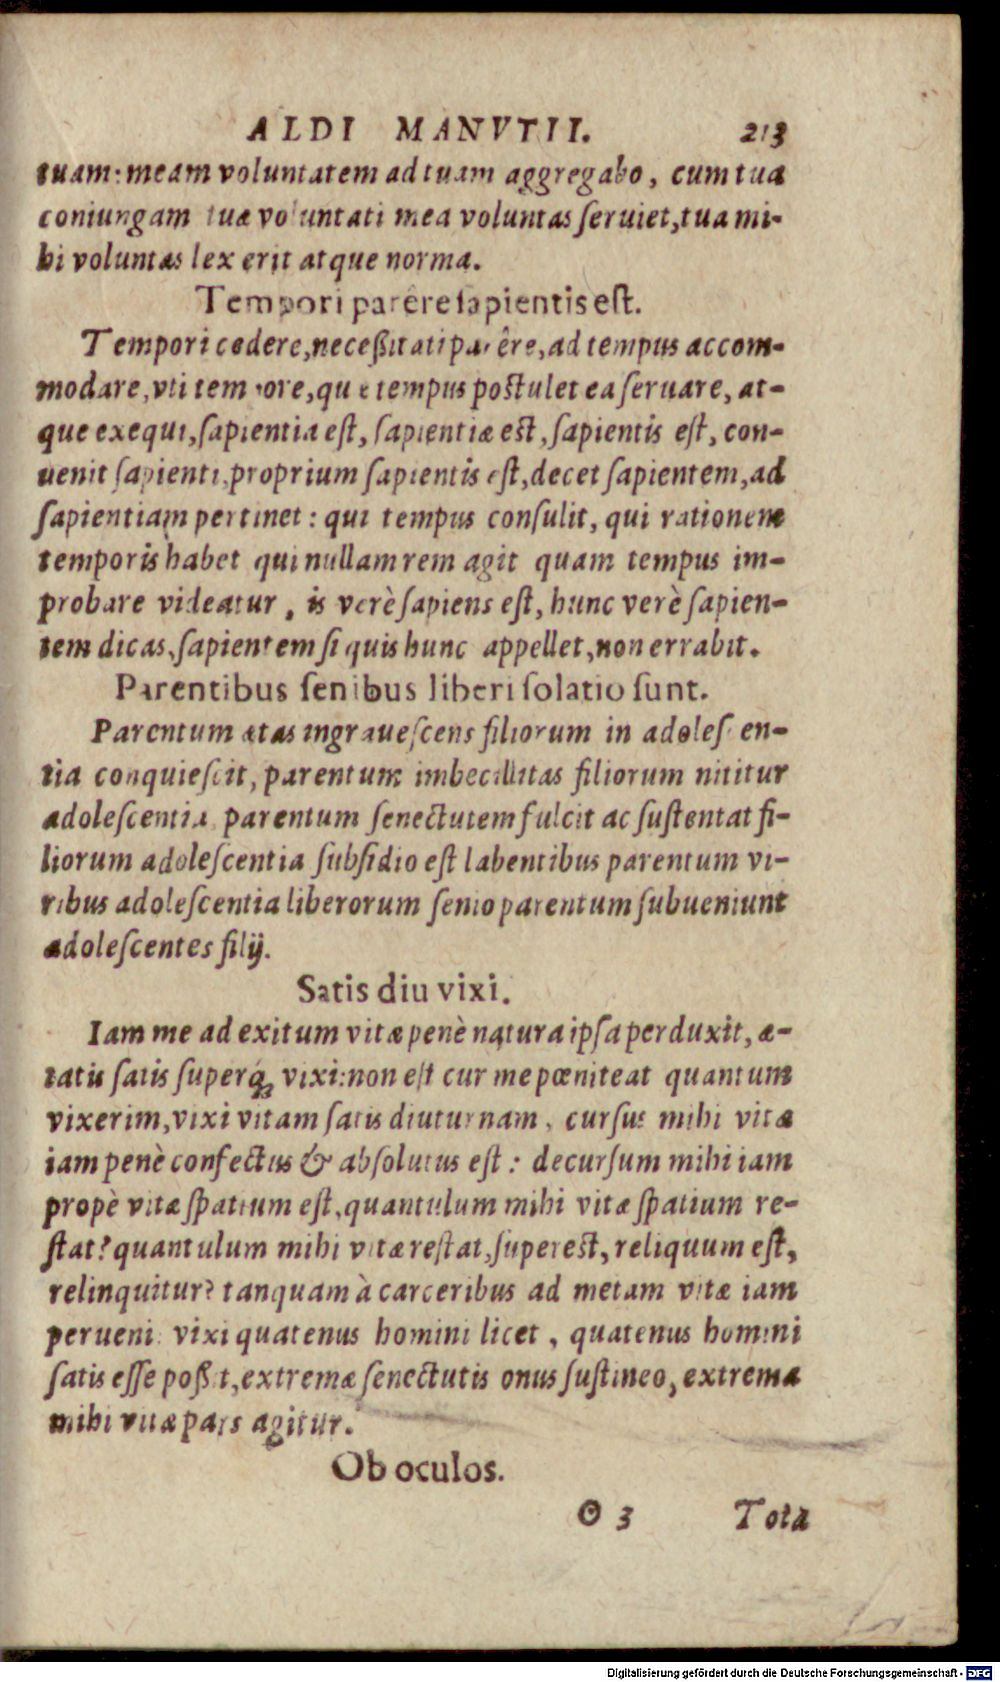 ALDI MANVTII. 213
tuam: meam voluntatem ad tuam aggregabo, cum tua
coniungam tuæ voluntati mea voluntas ſeruiet, tua mi-
hi voluntas lex erit atque norma.
Tempori parêre ſapientis eſt.
Tempori cedere, neceßitati parêre, ad tempus accom-
modare, vti tempore, quæ tempus poſtulet ea ſeruare, at-
que exequi, ſapientia eſt, ſapientiæ eſt, ſapientis eſt, con-
uenit ſapienti, proprium ſapientis eſt, decet ſapientem, ad
ſapientiam pertinet: qui tempus conſulit, qui rationem
temporis habet qui nullam rem agit quam tempus im-
probare videatur, is verè ſapiens eſt, hunc verè ſapien-
tem dicas, ſapientem ſi quis hunc appellet, non errabit.
Parentibus ſenibus liberi ſolatio ſunt.
Parentum ætas ingraueſcens filiorum in adoleſcen-
tia conquieſcit, parentum imbecillitas filiorum nititur
adoleſcentia, parentum ſenectutem fulcit ac ſuſtentat fi-
liorum adoleſcentia ſubſidio eſt labentibus parentum vi-
ribus adoleſcentia liberorum ſenio parentum ſubueniunt
adoleſcentes filij.
Satis diu vixi.
Iam me ad exitum vitæ penè natura ipſa perduxit, æ-
tatis ſatis ſuperq́; vixi: non eſt cur me pœniteat quantum
vixerim, vixi vitam ſatis diuturnam, curſus mihi vitæ
iam penè confectus & abſolutus eſt: decurſum mihi iam
propè vitæ ſpatium eſt, quantulum mihi vitæ ſpatium re-
ſtat? quantulum mihi vitæ reſtat, ſupereſt, reliquum eſt,
relinquitur? tanquam à carceribus ad metam vitæ iam
perueni: vixi quatenus homini licet, quatenus homini
ſatis eſſe poßit, extremæ ſenectutis onus ſuſtineo, extrema
mihi vitæ pars agitur.
Ob oculos.
O 3 Tota
Digitalisierung gefördert durch die Deutsche Forschungsgemeinschaft - DFG